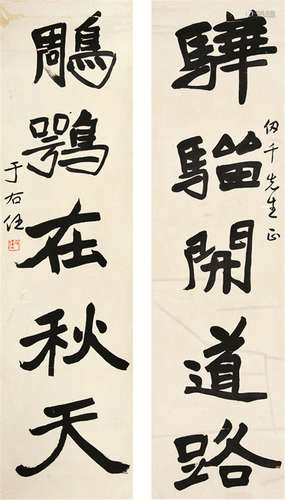 驊騮開道路
仞千先生正
鵰鶚在秋天
于右任